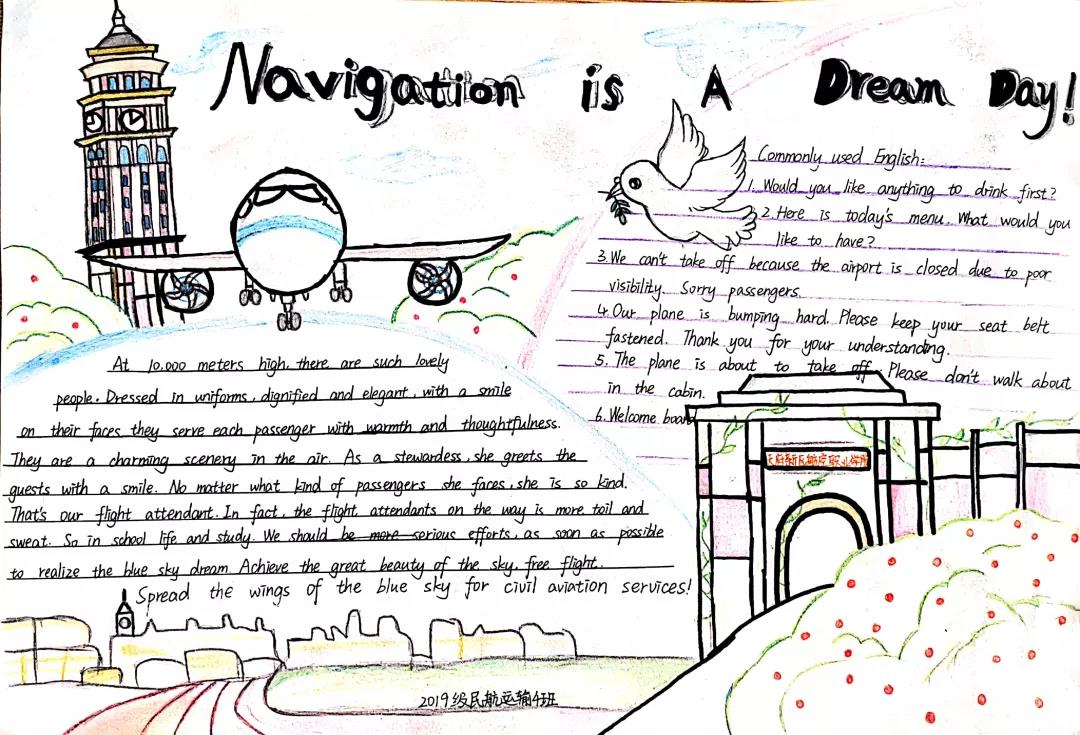 Navigation is A Dream Day!
Commonly used English:
1. Would you like anything to drink first?
2. Here is today's menu. What would you
like to have?
3. We can't take off because the airport is closed due to poor
visibility. Sorry passengers.
4. Our plane is bumping hard. Please keep your seat belt
fastened. Thank you for your understanding.
5. The plane is about to take off. Please don't walk about
in the cabin.
6. Welcome board
At 10.000 meters high, there are such lovely
people. Dressed in uniforms, dignified and elegant, with a smile
on their faces they serve each passenger with warmth and thoughtfulness.
They are a charming scenery in the air. As a stewardess, she greets the
guests with a smile. No matter what kind of passengers she faces, she is so kind.
That's our flight attendant. In fact, the flight attendants on the way is more toil and
sweat. So in school life and study. We should be more serious efforts, as soon as possible
to realize the blue sky dream. Achieve the great beauty of the sky, free flight.
Spread the wings of the blue sky for civil aviation services!
2019级民航运输4班